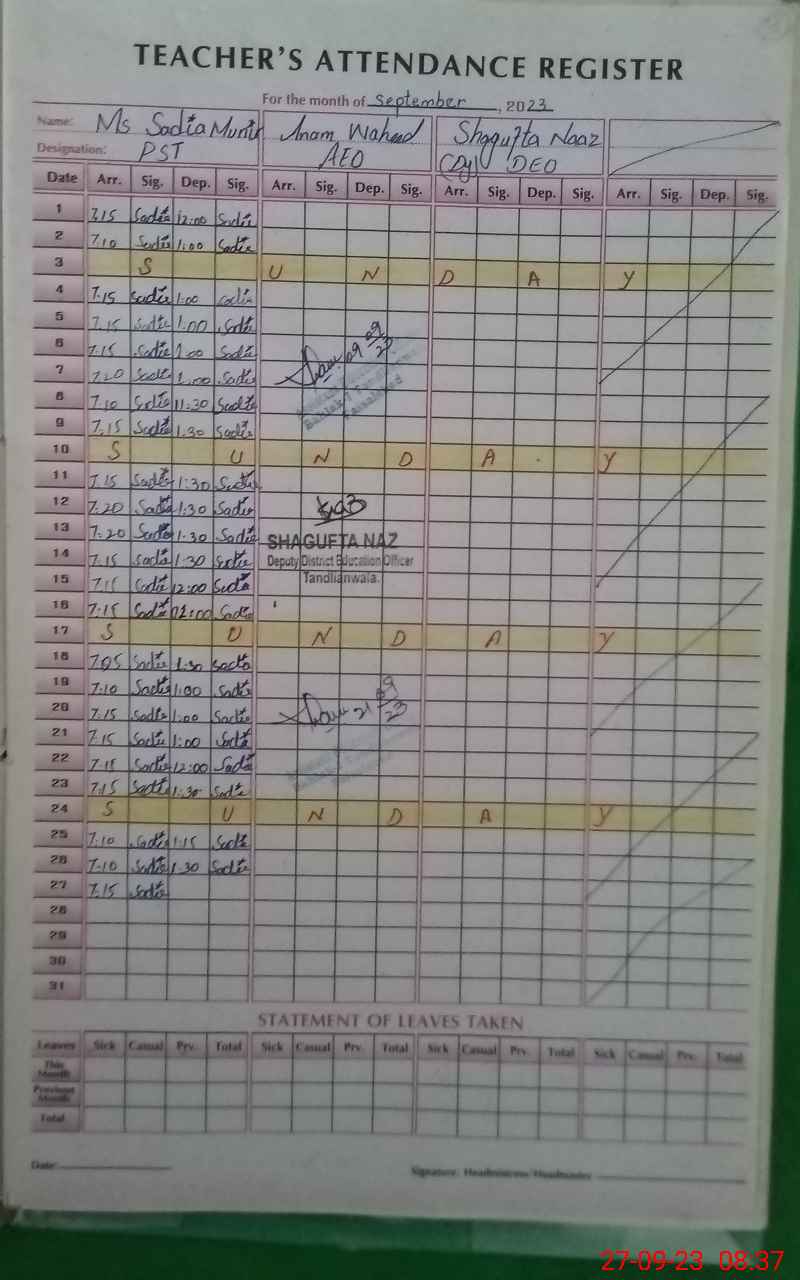 TEACHER'S ATTENDANCE REGISTER
For the month of September, 2023
Name: Ms Sadia Anam Waheed Shagufta Naaz
Designation: PST AEO (Dy) DEO
Date Arr. Sig. Dep. Sig. Arr. Sig. Dep. Sig. Arr. Sig. Dep. Sig. Arr. Sig. Dep. Sig.
1 7.15 Sadia 12:00 Sadia
2 7.10 Sadia 1:00 Sadia
3 S U N D A Y
4 7.15 Sadia 1:00 Sadia
5 7.15 Sadia 1:00 Sadia
6 7.15 Sadia 1:00 Sadia
7 7.20 Sadia 1:00 Sadia
8 7.10 Sadia 11:30 Sadia
9 7.15 Sadia 1.30 Sadia
10 S U N D A Y
11 7.15 Sadia 1:30 Sadia
12 7.20 Sadia 1:30 Sadia
13 7.20 Sadia 1.30 Sadia
SHAGUFTA NAZ
14 7.15 Sadia 1:30 Sadia
Deputy District Education Officer
15 Sadia 12:00 Sadia
Tandlianwala.
16 7.15 Sadia 12:00 Sadia
17 S U N D A Y
18 7.05 Sadia 1:30 Sadia
19 7.10 Sadia 1:00 Sadia
20 7.15 Sadia 1:00 Sadia
21 7.15 Sadia 1:00 Sadia
22 7.15 Sadia 12:00 Sadia
23 7.15 Sadia 1:30 Sadia
24 S U N D A Y
25 7.10 Sadia 1.15 Sadia
26 7.10 Sadia 1.30 Sadia
27 7.15 Sadia
28
29
30
31
STATEMENT OF LEAVES TAKEN
Leaves Sick Casual Prv. Total Sick Casual Prv. Total Sick Casual Prv. Total Sick Casual Prv. Total
This Month
Previous Month
Total
Date: Signature: Headmistress/Headmaster
27-09-23 08:37